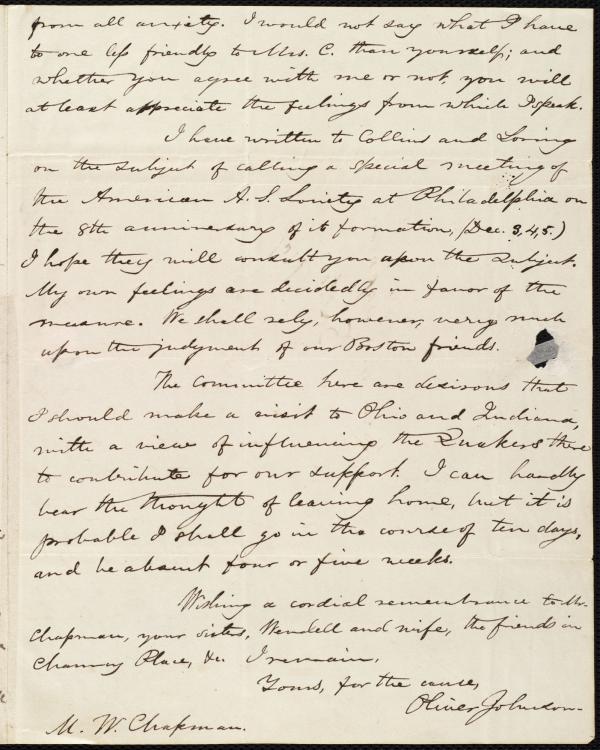 from all anxiety. I would not say what I have
to one less friendly to Mrs. C. than yourself; and
whether you agree with me or not, you will
at least appreciate the feelings from which I speak.
I have written to Collins and Loring
on the subject of calling a special meeting of
the American A. S. Society at Philadelphia on
the 8th anniversary of its formation, (Dec. 3, 4, 5.)
I hope they will consult you upon the subject.
My own feelings are decidedly in favor of the
measure. We shall rely, however, very much
upon the judgment of our Boston friends.
The Committee here are desirous that
I should make a visit to Ohio and Indiana,
with a view of influencing the Quakers there
to contribute for our support. I can hardly
bear the thought of leaving home, but it is
probable I shall go in the course of ten days,
and be absent four or five weeks.
Wishing a cordial remembrance to Mr.
Chapman, your sisters, Wendell and wife, the friends in
Chauncy Place, &c. I remain,
Yours, for the cause,
Oliver Johnson.
M. W. Chapman.